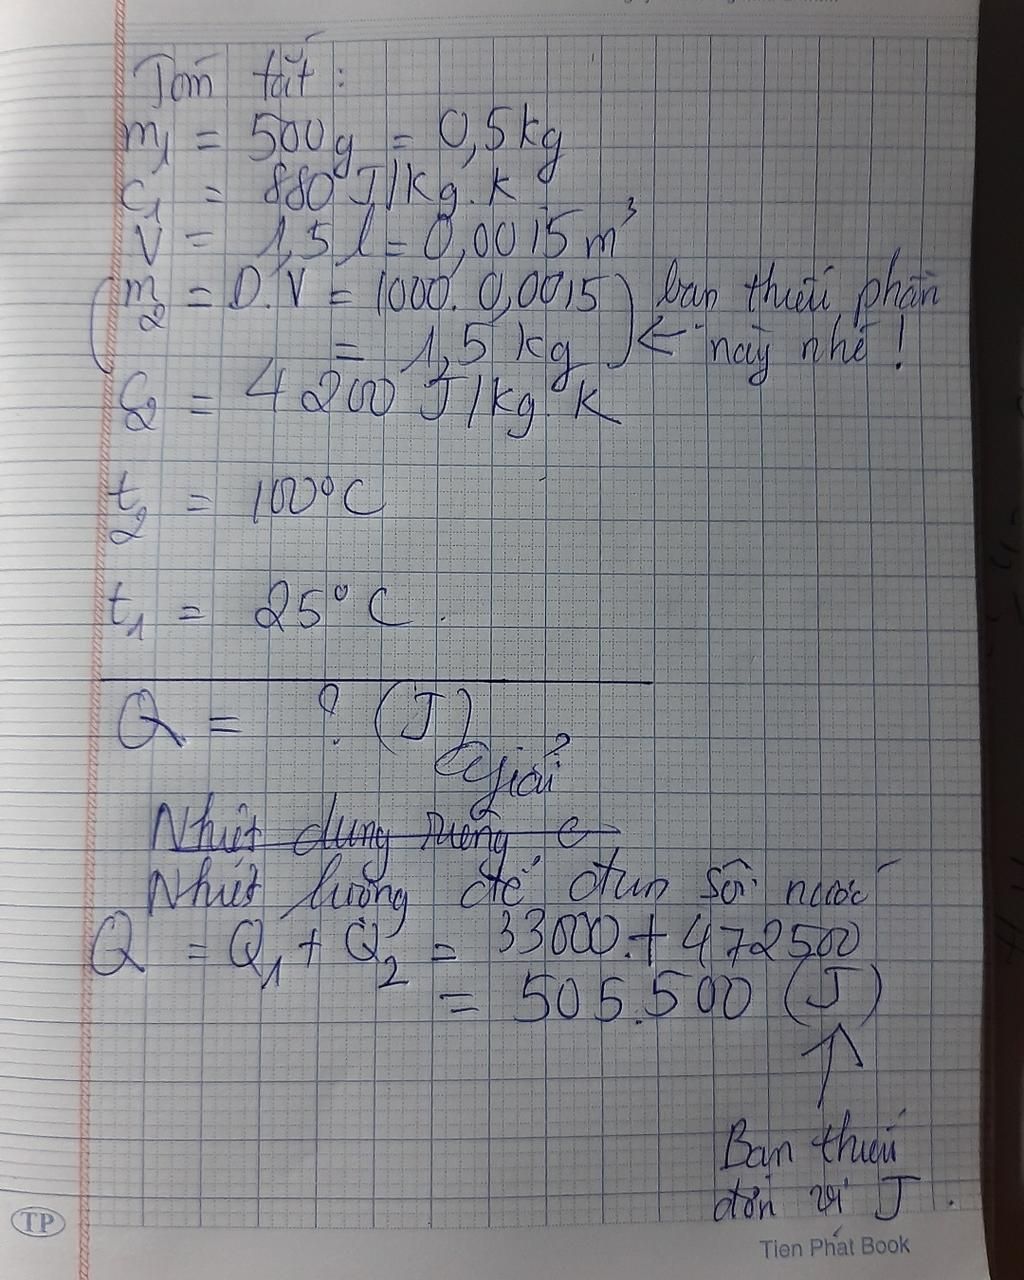 Tóm tắt:
m1 = 500g = 0,5kg
C1 = 880 J/kg.k
V = 1,5 l = 0,0015 m³
(m2 = D.V = 1000. 0,0015
= 1,5 kg) ← bạn thiếu phần
này nhé!
C2 = 4200 J/kg.K
t2 = 100°C
t1 = 25°C.
Q = ? (J)
Giải
Nhiệt dung riêng c
Nhiệt lượng để đun sôi nước
Q = Q1 + Q2 = 33000.+ 472500
= 505.500 (J)
Bạn thiếu
đơn vị J.
TP
Tien Phat Book